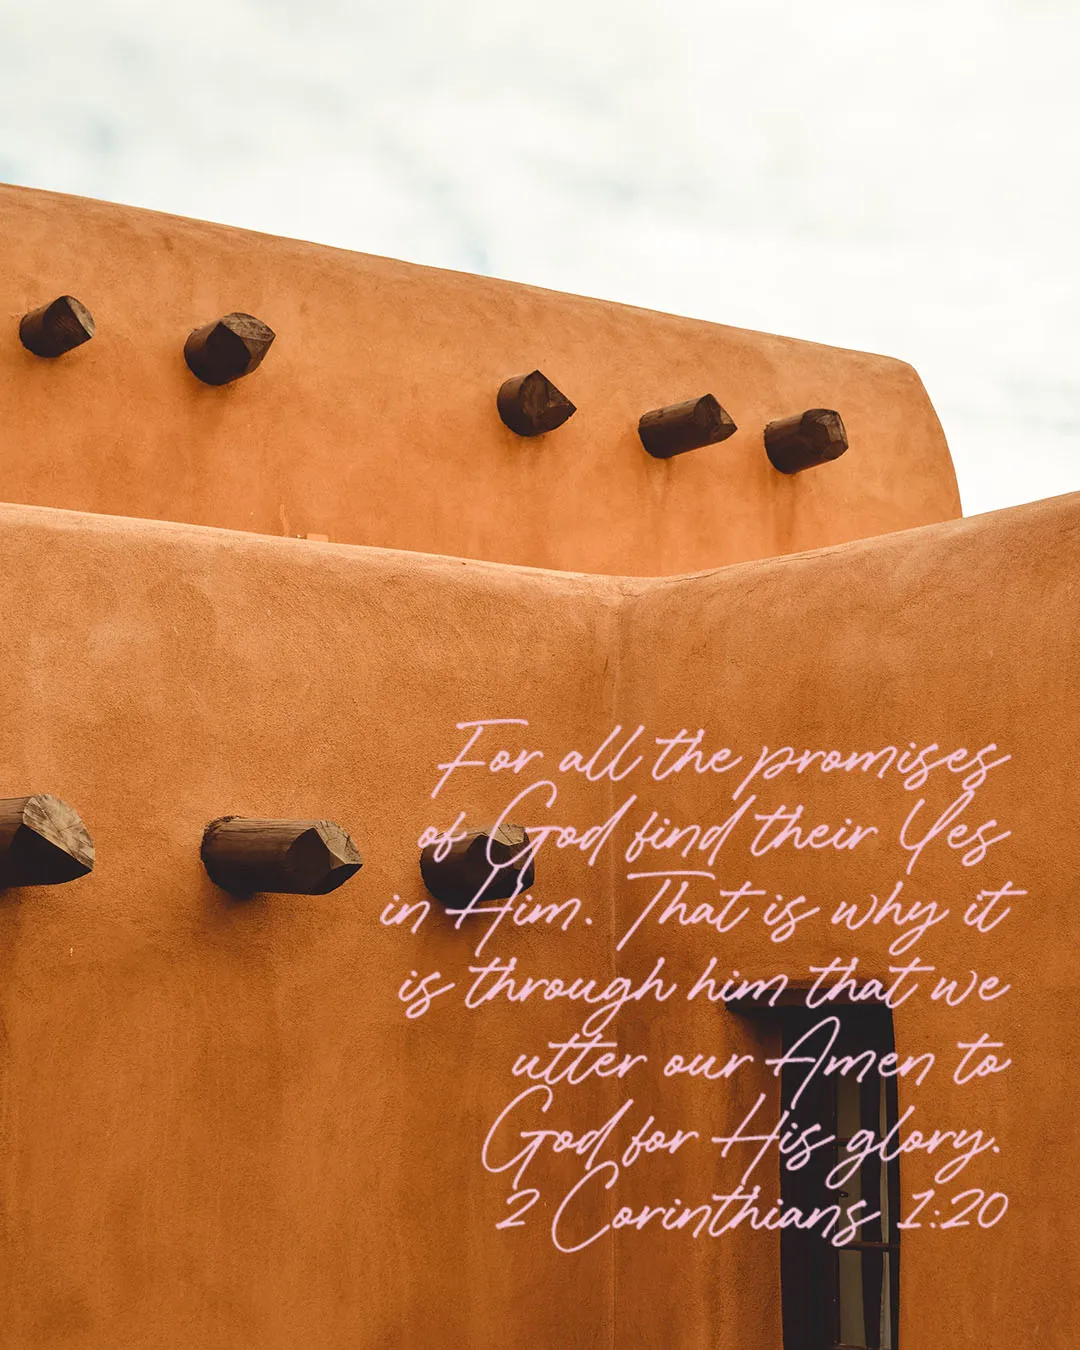 For all the promises
of God find their Yes
in Him. That is why it
is through him that we
utter our Amen to
God for His glory.
2 Corinthians 1:20